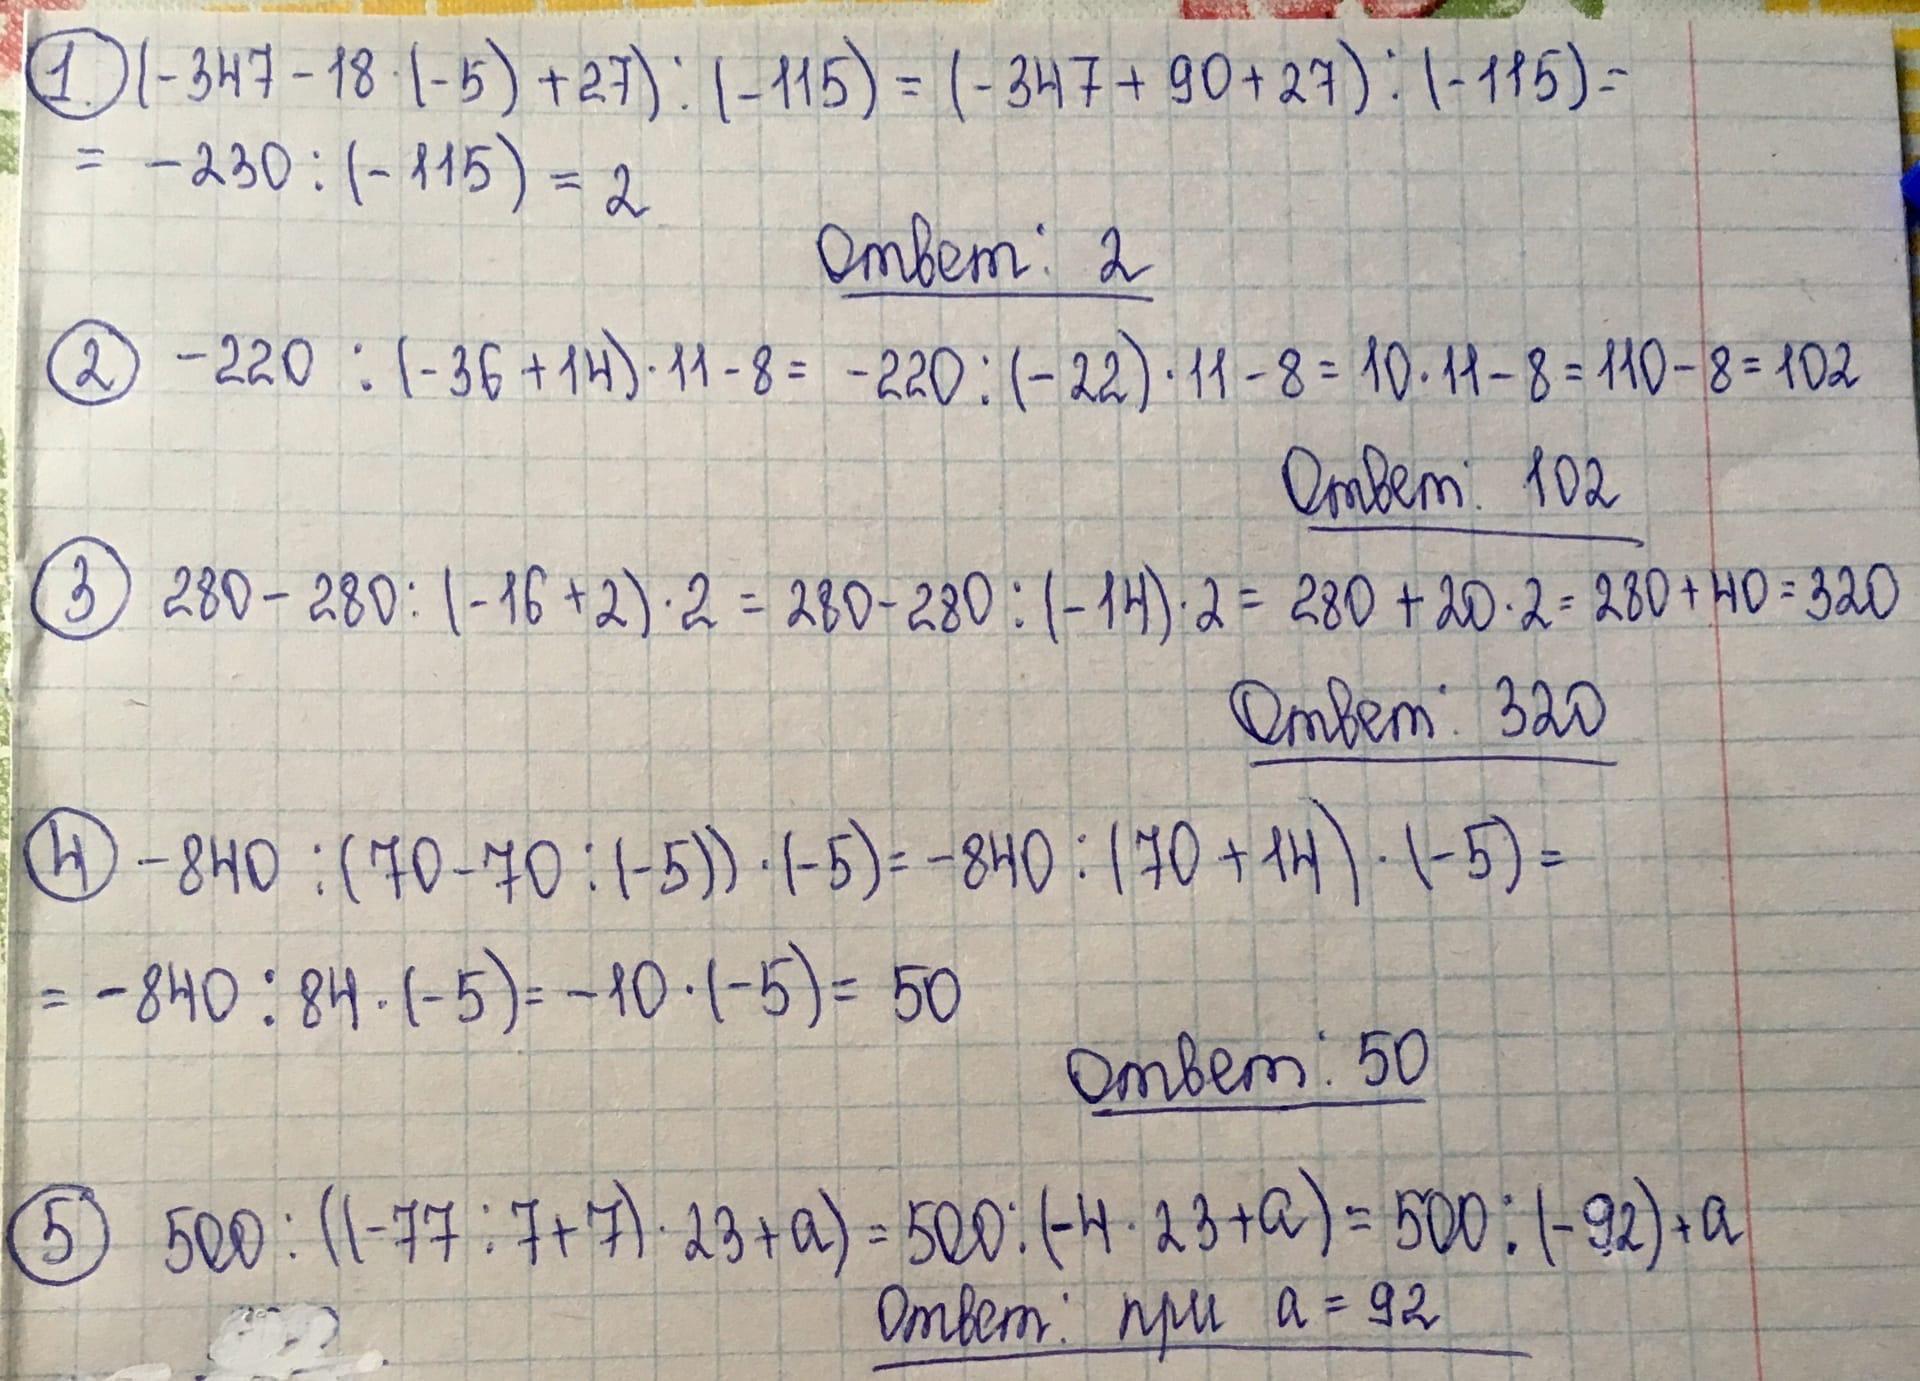 1. (-347-18·(-5)+27):(-115)=(-347+90+27):(-115)=
= -230:(-115)=2
Ответ: 2
2 -220:(-36+14)·11-8= -220:(-22)·11-8=10·11-8=110-8=102
Ответ: 102
3 280-280:(-16+2)·2=280-280:(-14)·2=280+20·2=280+40=320
Ответ: 320
4 -840:(70-70:(-5))·(-5)=-840:(70+14)·(-5)=
= -840:84·(-5)=-10·(-5)=50
Ответ: 50
5 500:((-77:7+7)·23+a)=500:(-4·23+a)=500:(-92)+a
Ответ: при a=92